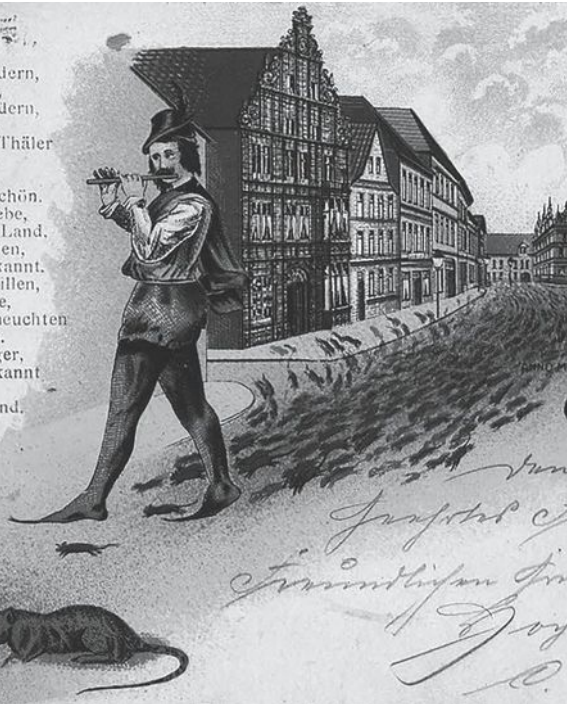 dern,
dern,
Thäler
chön.
ebe,
Land.
en,
kannt.
illen,
e,
leuchten
ger,
kannt
nd.
ANNO M
den
Geehrtes
Freundlichen